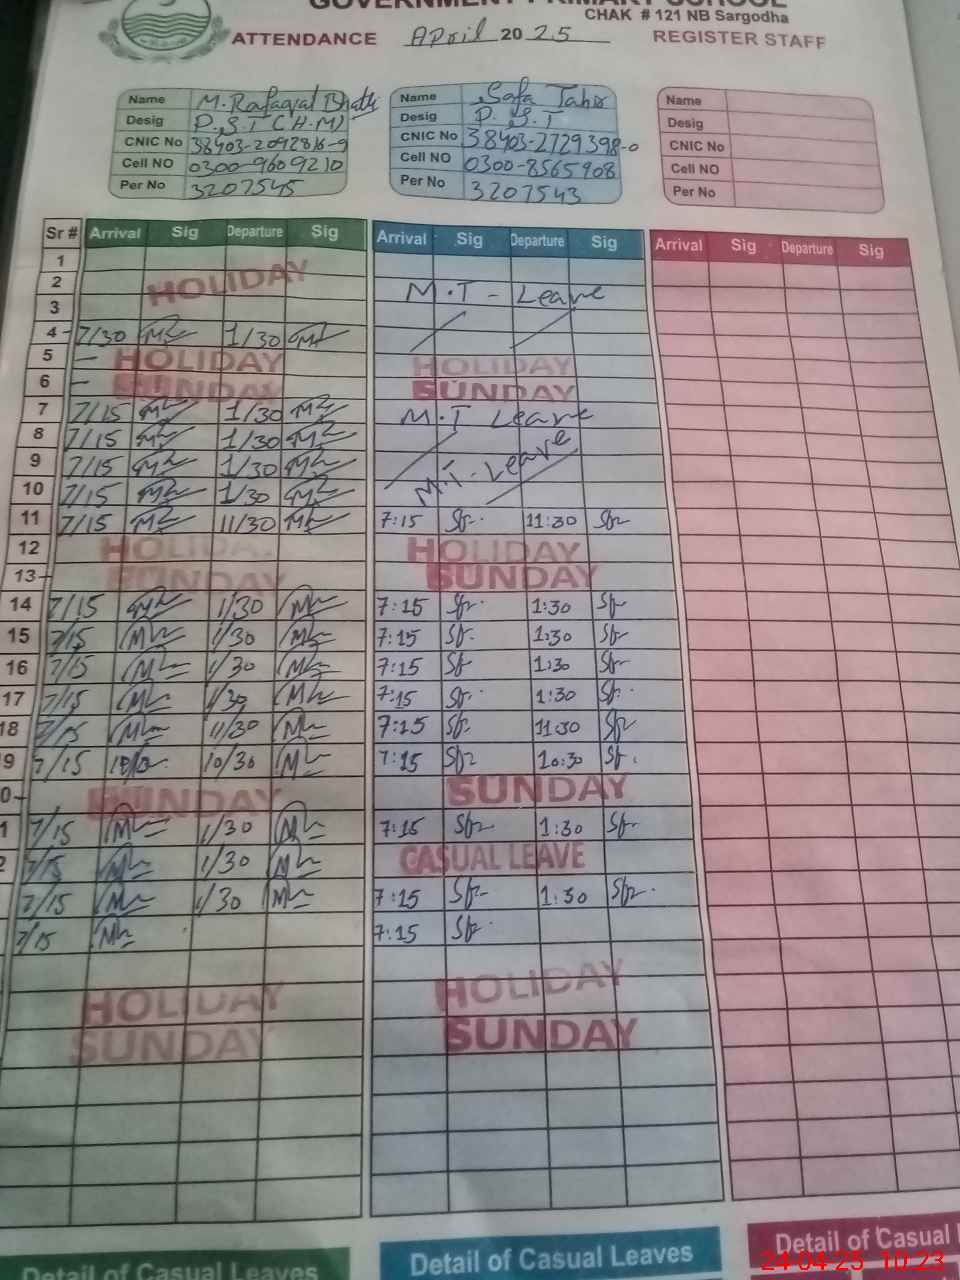 GOVERNMENT PRIMARY SCHOOL
CHAK # 121 NB Sargodha
ATTENDANCE April 2025 REGISTER STAFF
Name M. Rafaqat Bhatti Name Safa Tahir Name
Desig P.S.T (H.M) Desig P.S.T Desig
CNIC No 38403-2092816-9 CNIC No 38403-2729398-0 CNIC No
Cell NO 0300-9609210 Cell NO 0300-8565908 Cell NO
Per No 3207545 Per No 3207543 Per No
Sr # Arrival Sig Departure Sig Arrival Sig Departure Sig Arrival Sig Departure Sig
1
2 HOLIDAY M.T - Leave
3
4 7/30 1/30
5 HOLIDAY HOLIDAY
6 SUNDAY SUNDAY
7 7/15 1/30 M.T Leave
8 7/15 1/30
9 7/15 1/30 M.T. Leave
10 7/15 1/30
11 7/15 11/30 7:15 11:30
12 HOLIDAY HOLIDAY
13 SUNDAY SUNDAY
14 7/15 1/30 7:15 1:30
15 7/15 1/30 7:15 1:30
16 7/15 1/30 7:15 1:30
17 7/15 1/30 7:15 1:30
18 7/15 11/30 7:15 11:30
9 7/15 10/30 7:15 10:30
0 SUNDAY SUNDAY
1 7/15 1/30 7:15 1:30
2 7/15 1/30 CASUAL LEAVE
7/15 1/30 7:15 1:30
7/15 7:15
HOLIDAY HOLIDAY
SUNDAY SUNDAY
Detail of Casual Leaves Detail of Casual Leaves Detail of Casual
24 04 25 10:23